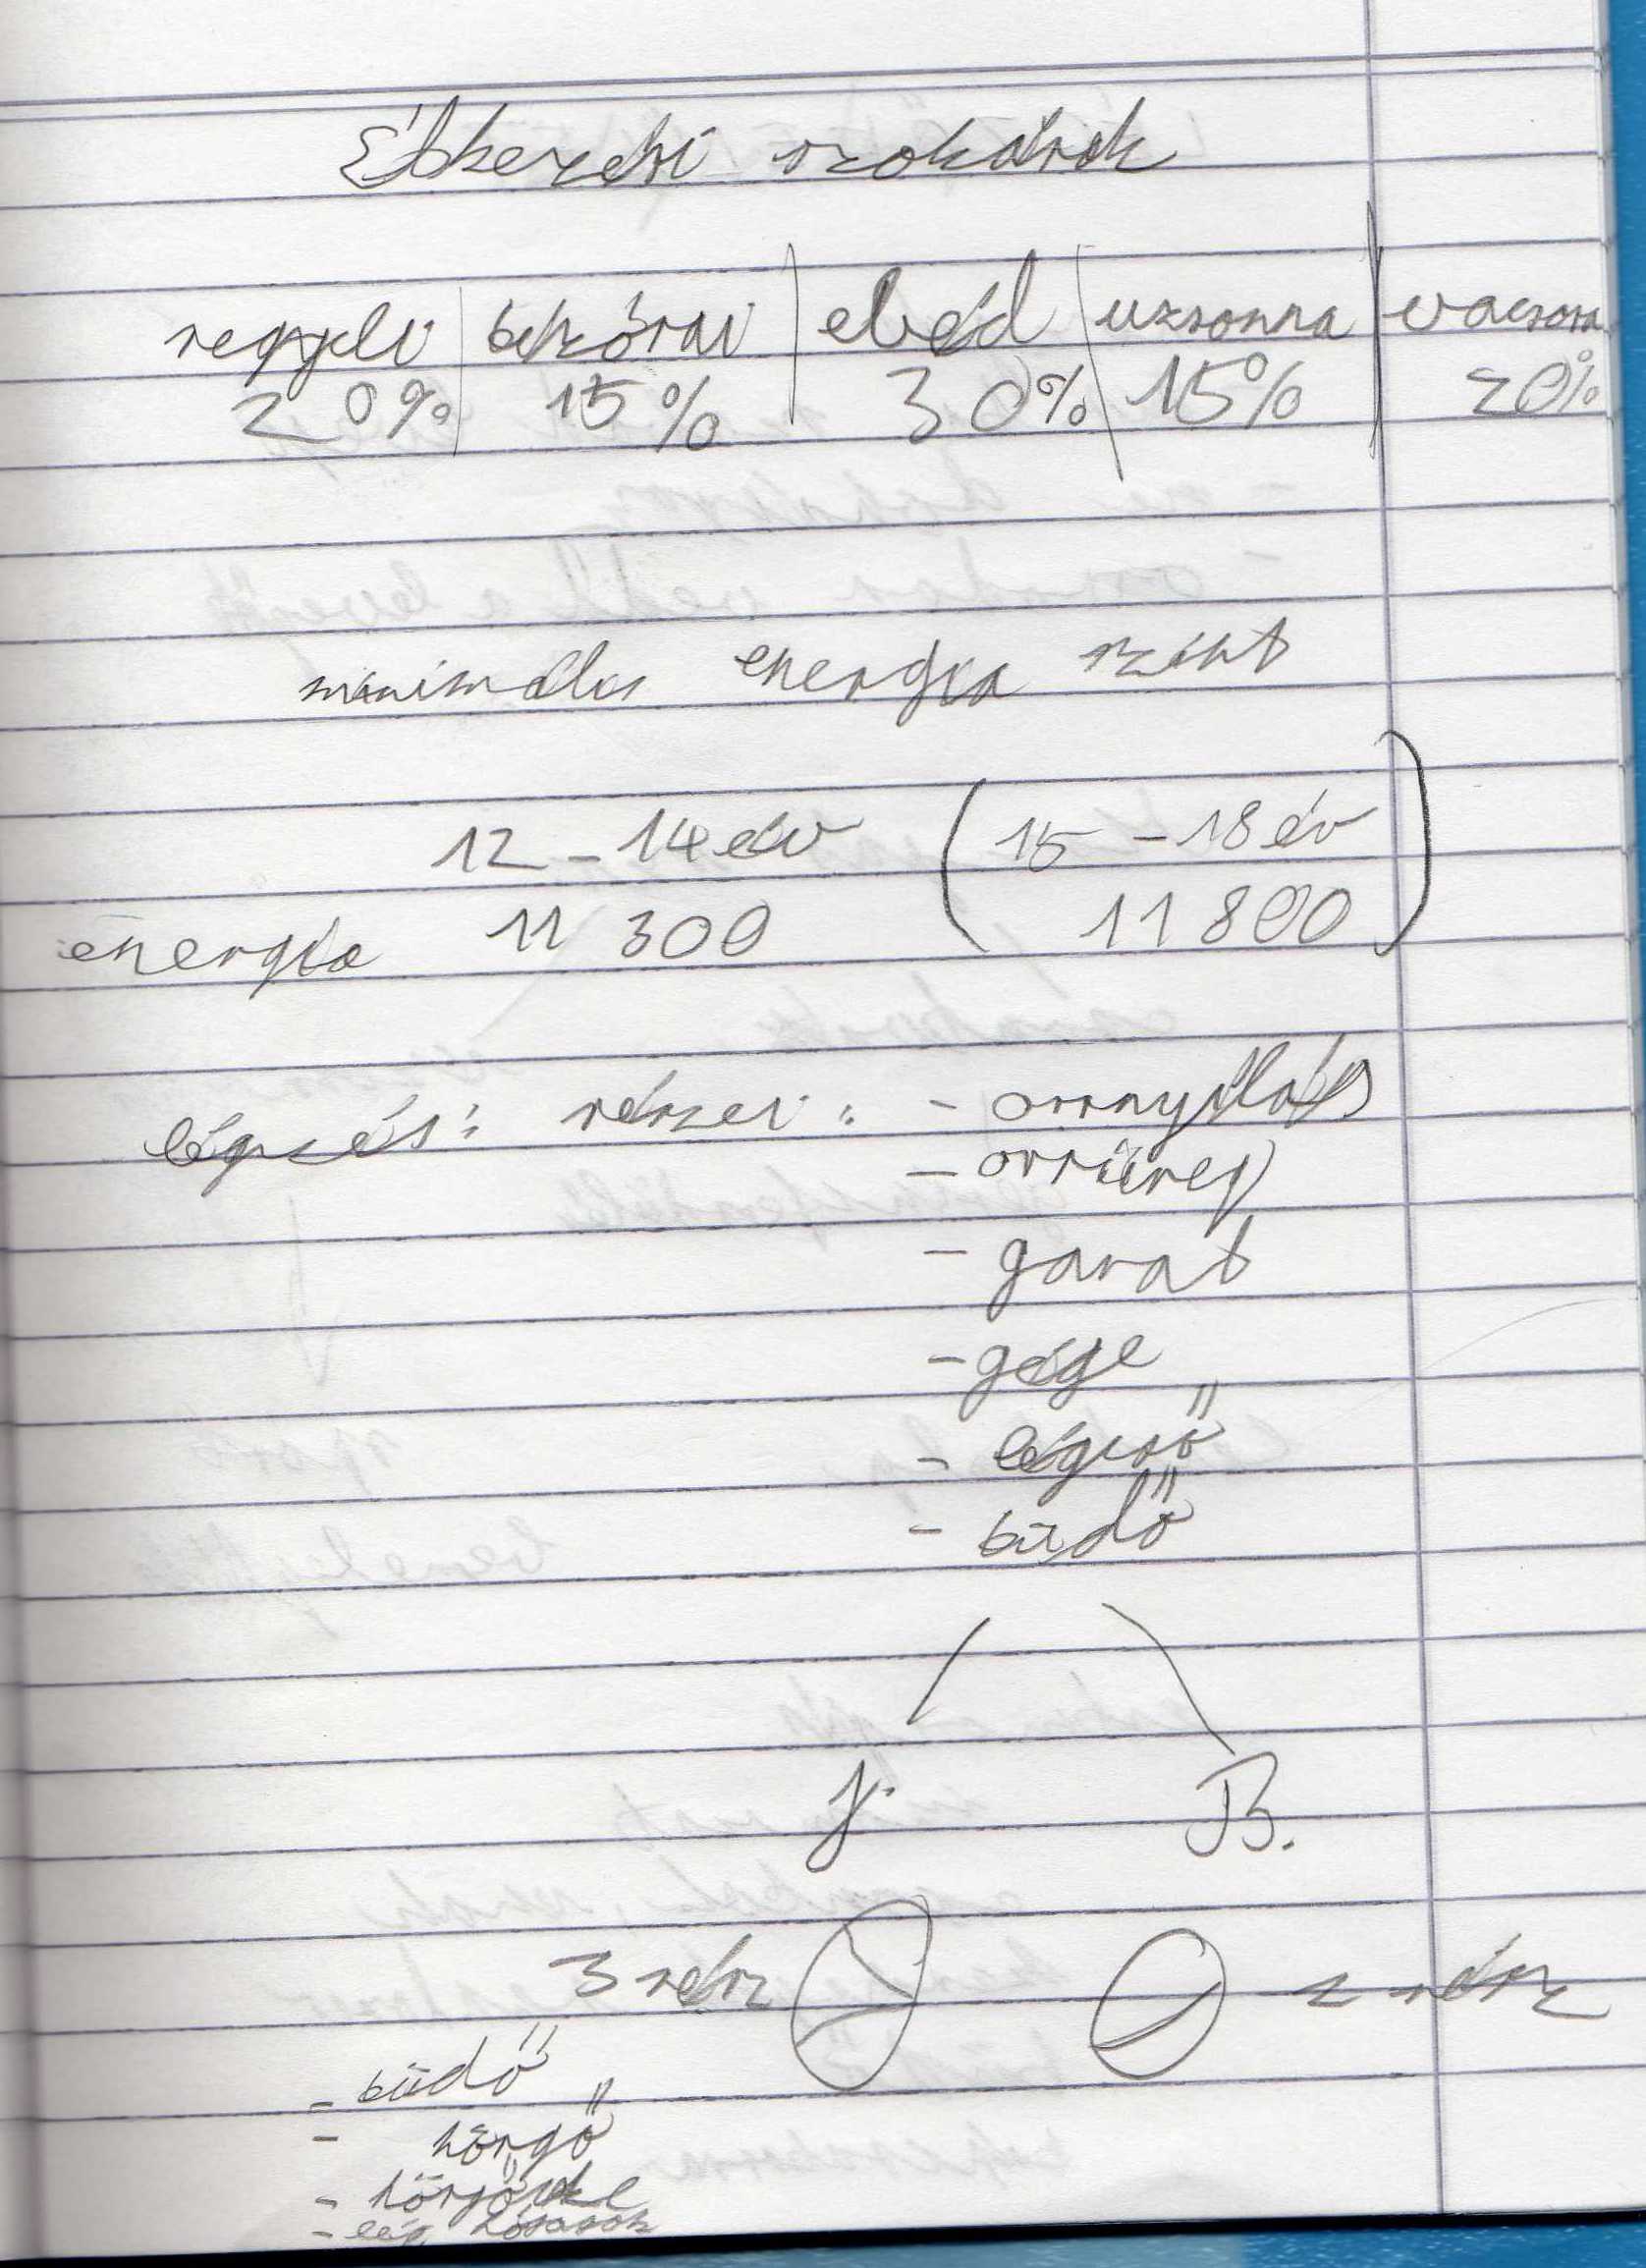 Étkezési szokások
reggeli | tízórai | ebéd | uzsonna | vacsora
20% 15% 30% 15% 20%
minimális energia szint
12 - 14 év (15 - 18 év)
energia 11 300 11 800
légzés: részei: - orrnyílás
- orrüreg
- garat
- gége
- légcső
- tüdő
J. B.
3 rész 2 rész
- tüdő
- hörgő
- hörgőcske
- lég hólyagok